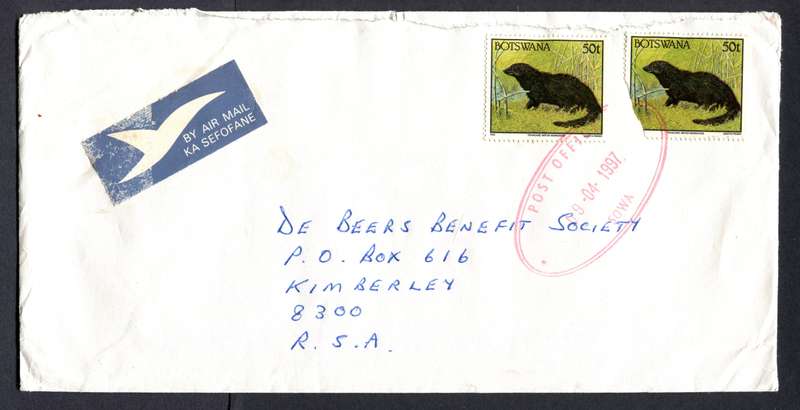 BOTSWANA 50t
BOTSWANA 50t
BY AIR MAIL
KA SEFOFANE
POST OFFI
9-04-1997
OWA
DE BEERS BENEFIT SOCIETY
P.O. BOX 616
KIMBERLEY
8300
R.S.A.